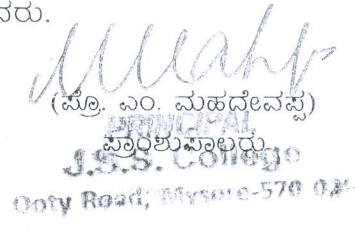 ದರು.
(ಪ್ರೊ. ಎಂ. ಮಹದೇವಪ್ಪ)
PRINCIPAL
ಪ್ರಾಂಶುಪಾಲರು
J.S.S. College
Ooty Road, Mysore-570